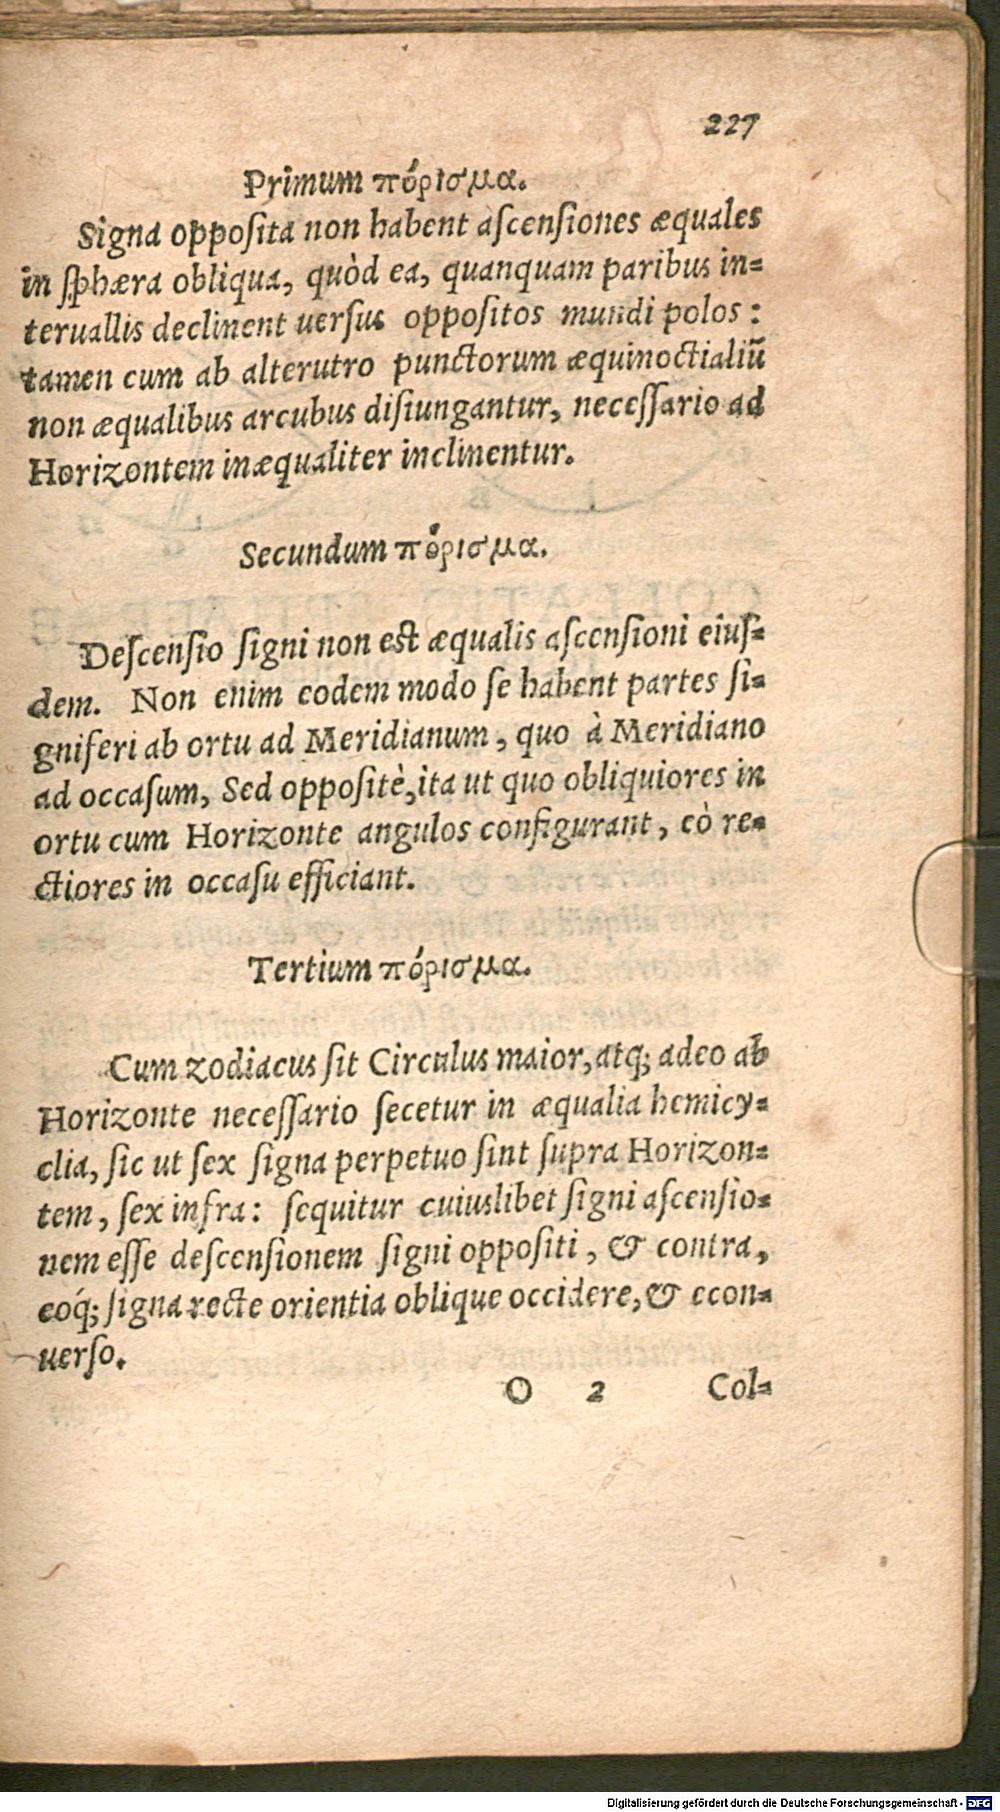 227
Primum πόρισμα.
Signa opposita non habent ascensiones æquales
in sphæra obliqua, quòd ea, quanquam paribus in=
teruallis declinent uersus oppositos mundi polos:
tamen cum ab alterutro punctorum æquinoctialiũ
non æqualibus arcubus disiungantur, necessario ad
Horizontem inæqualiter inclinentur.
Secundum πόρισμα.
Descensio signi non est æqualis ascensioni eius=
dem. Non enim eodem modo se habent partes si=
gniferi ab ortu ad Meridianum, quo à Meridiano
ad occasum, Sed oppositè, ita ut quo obliquiores in
ortu cum Horizonte angulos configurant, eò re=
ctiores in occasu efficiant.
Tertium πόρισμα.
Cum zodiacus sit Circulus maior, atq; adeo ab
Horizonte necessario secetur in æqualia hemicy=
clia, sic ut sex signa perpetuo sint supra Horizon=
tem, sex infra: sequitur cuiuslibet signi ascensio=
nem esse descensionem signi oppositi, & contra,
eoq́; signa recte orientia oblique occidere, & econ=
uerso.
O 2 Col=
Digitalisierung gefördert durch die Deutsche Forschungsgemeinschaft - DFG